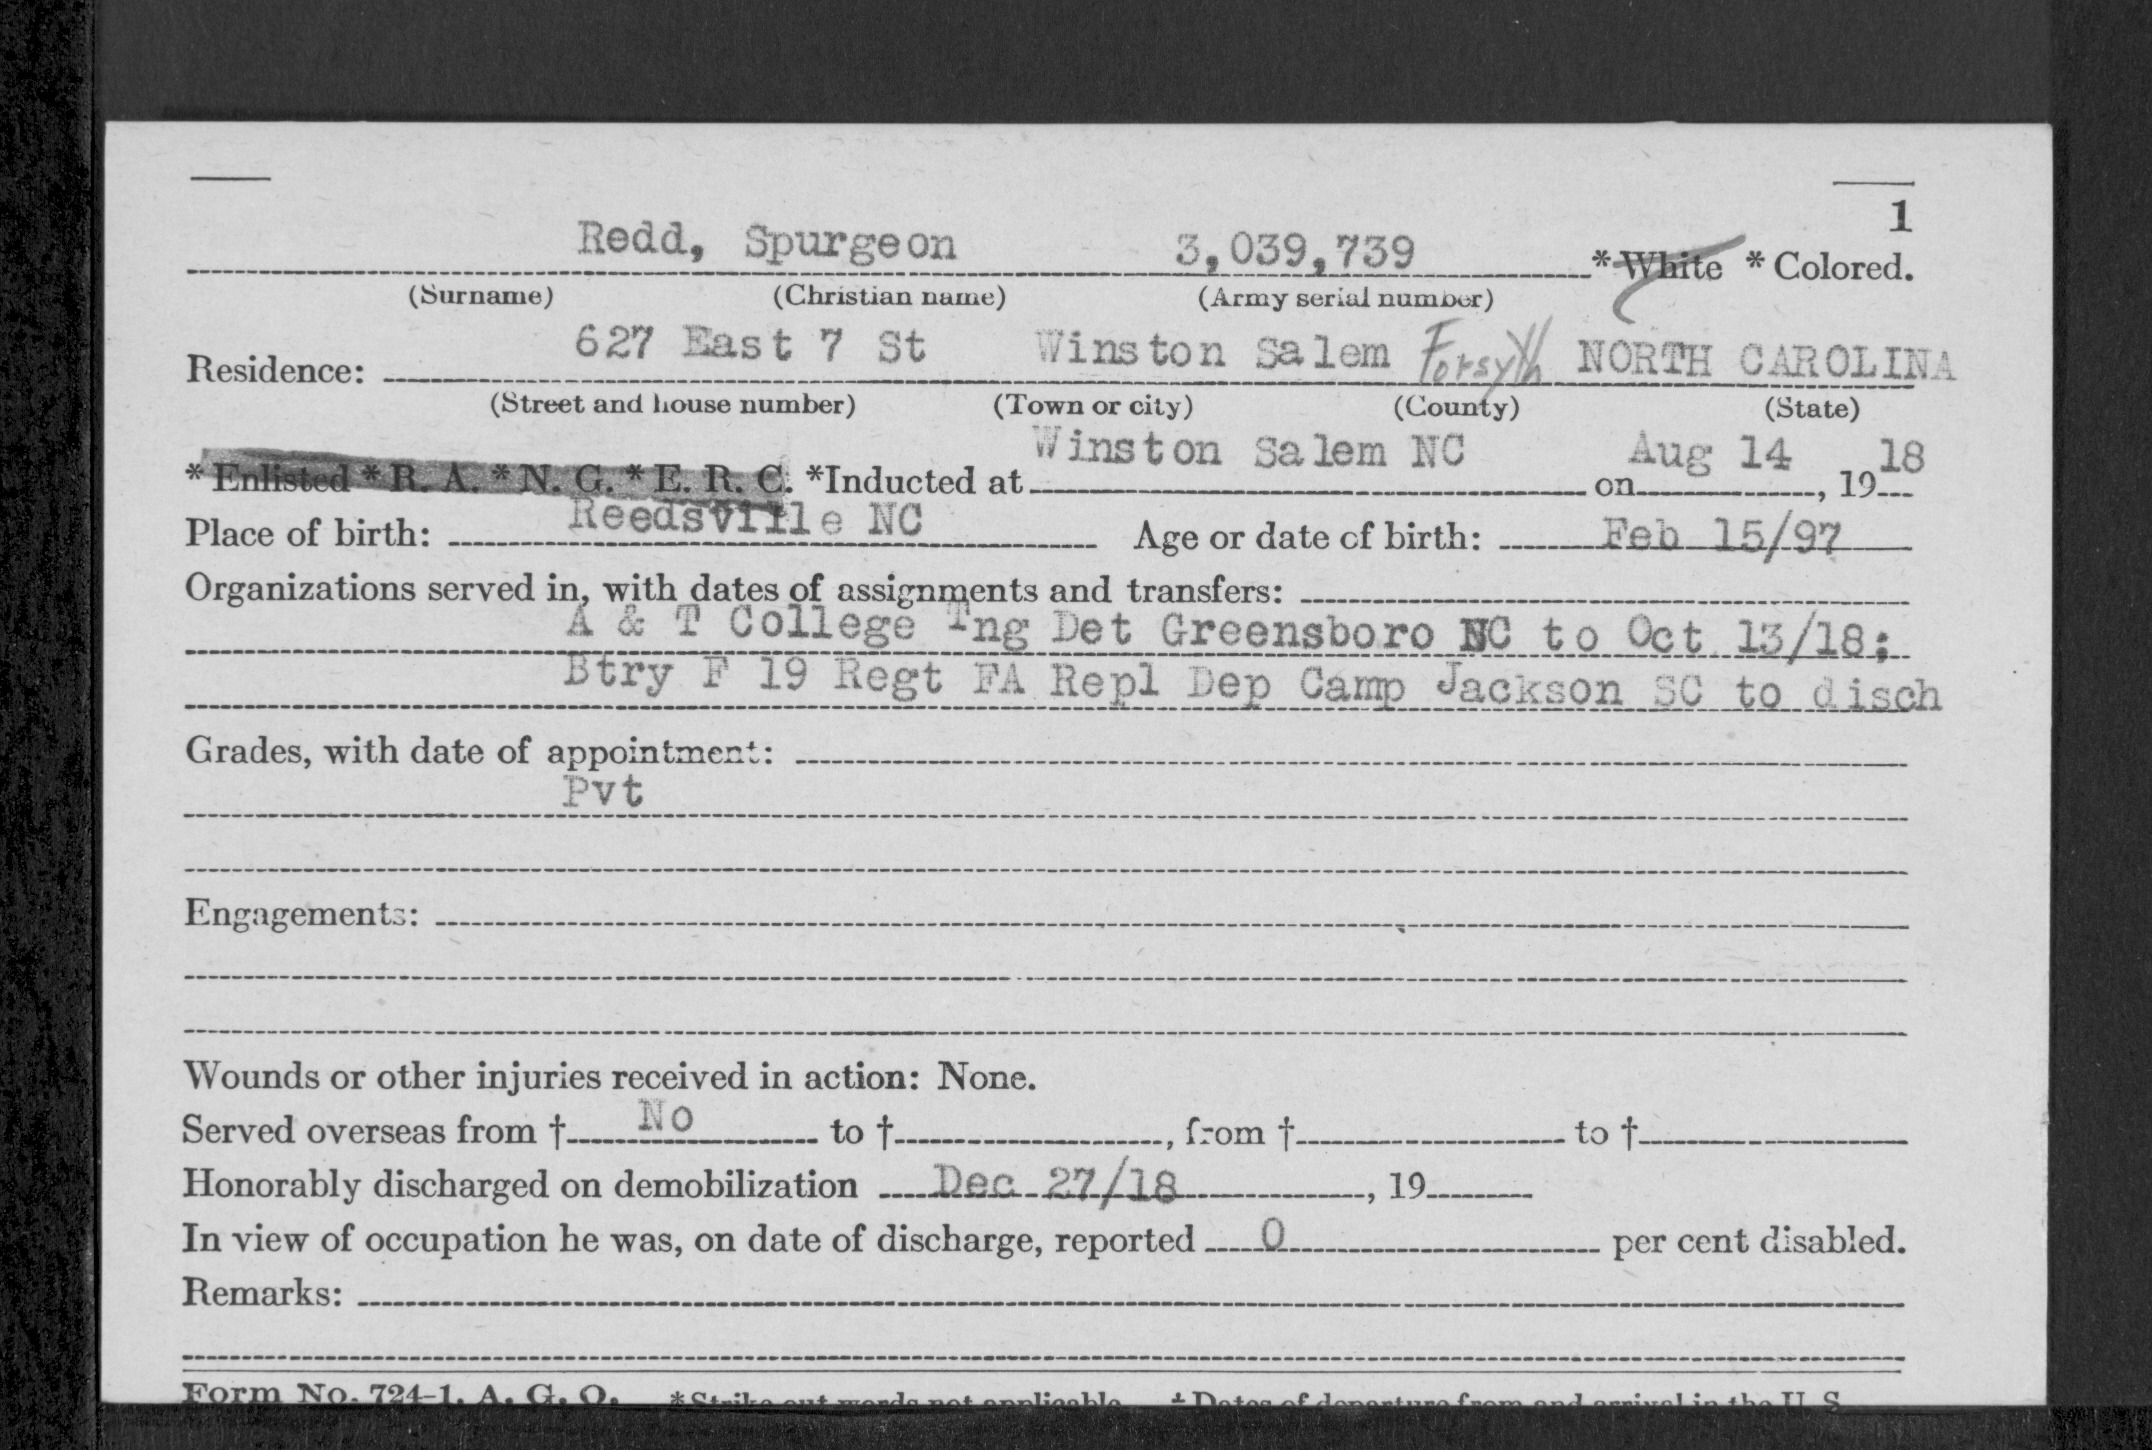 1
Redd, Spurgeon 3,039,739 * White * Colored.
(Surname) (Christian name) (Army serial number)
Residence: 627 East 7 St Winston Salem Forsyth NORTH CAROLINA
(Street and house number) (Town or city) (County) (State)
* Enlisted * R. A. * N. G. * E. R. C. *Inducted at Winston Salem NC on Aug 14, 1918
Place of birth: Reedsville NC Age or date of birth: Feb 15/97
Organizations served in, with dates of assignments and transfers:
A & T College Tng Det Greensboro NC to Oct 13/18;
Btry F 19 Regt FA Repl Dep Camp Jackson SC to disch
Grades, with date of appointment:
Pvt
Engagements:
Wounds or other injuries received in action: None.
Served overseas from † No to †, from † to †
Honorably discharged on demobilization Dec 27/18, 19
In view of occupation he was, on date of discharge, reported 0 per cent disabled.
Remarks:
Form No. 724-1, A. G. O. *Strike out words not applicable. † Dates of departure from and arrival in the U. S.